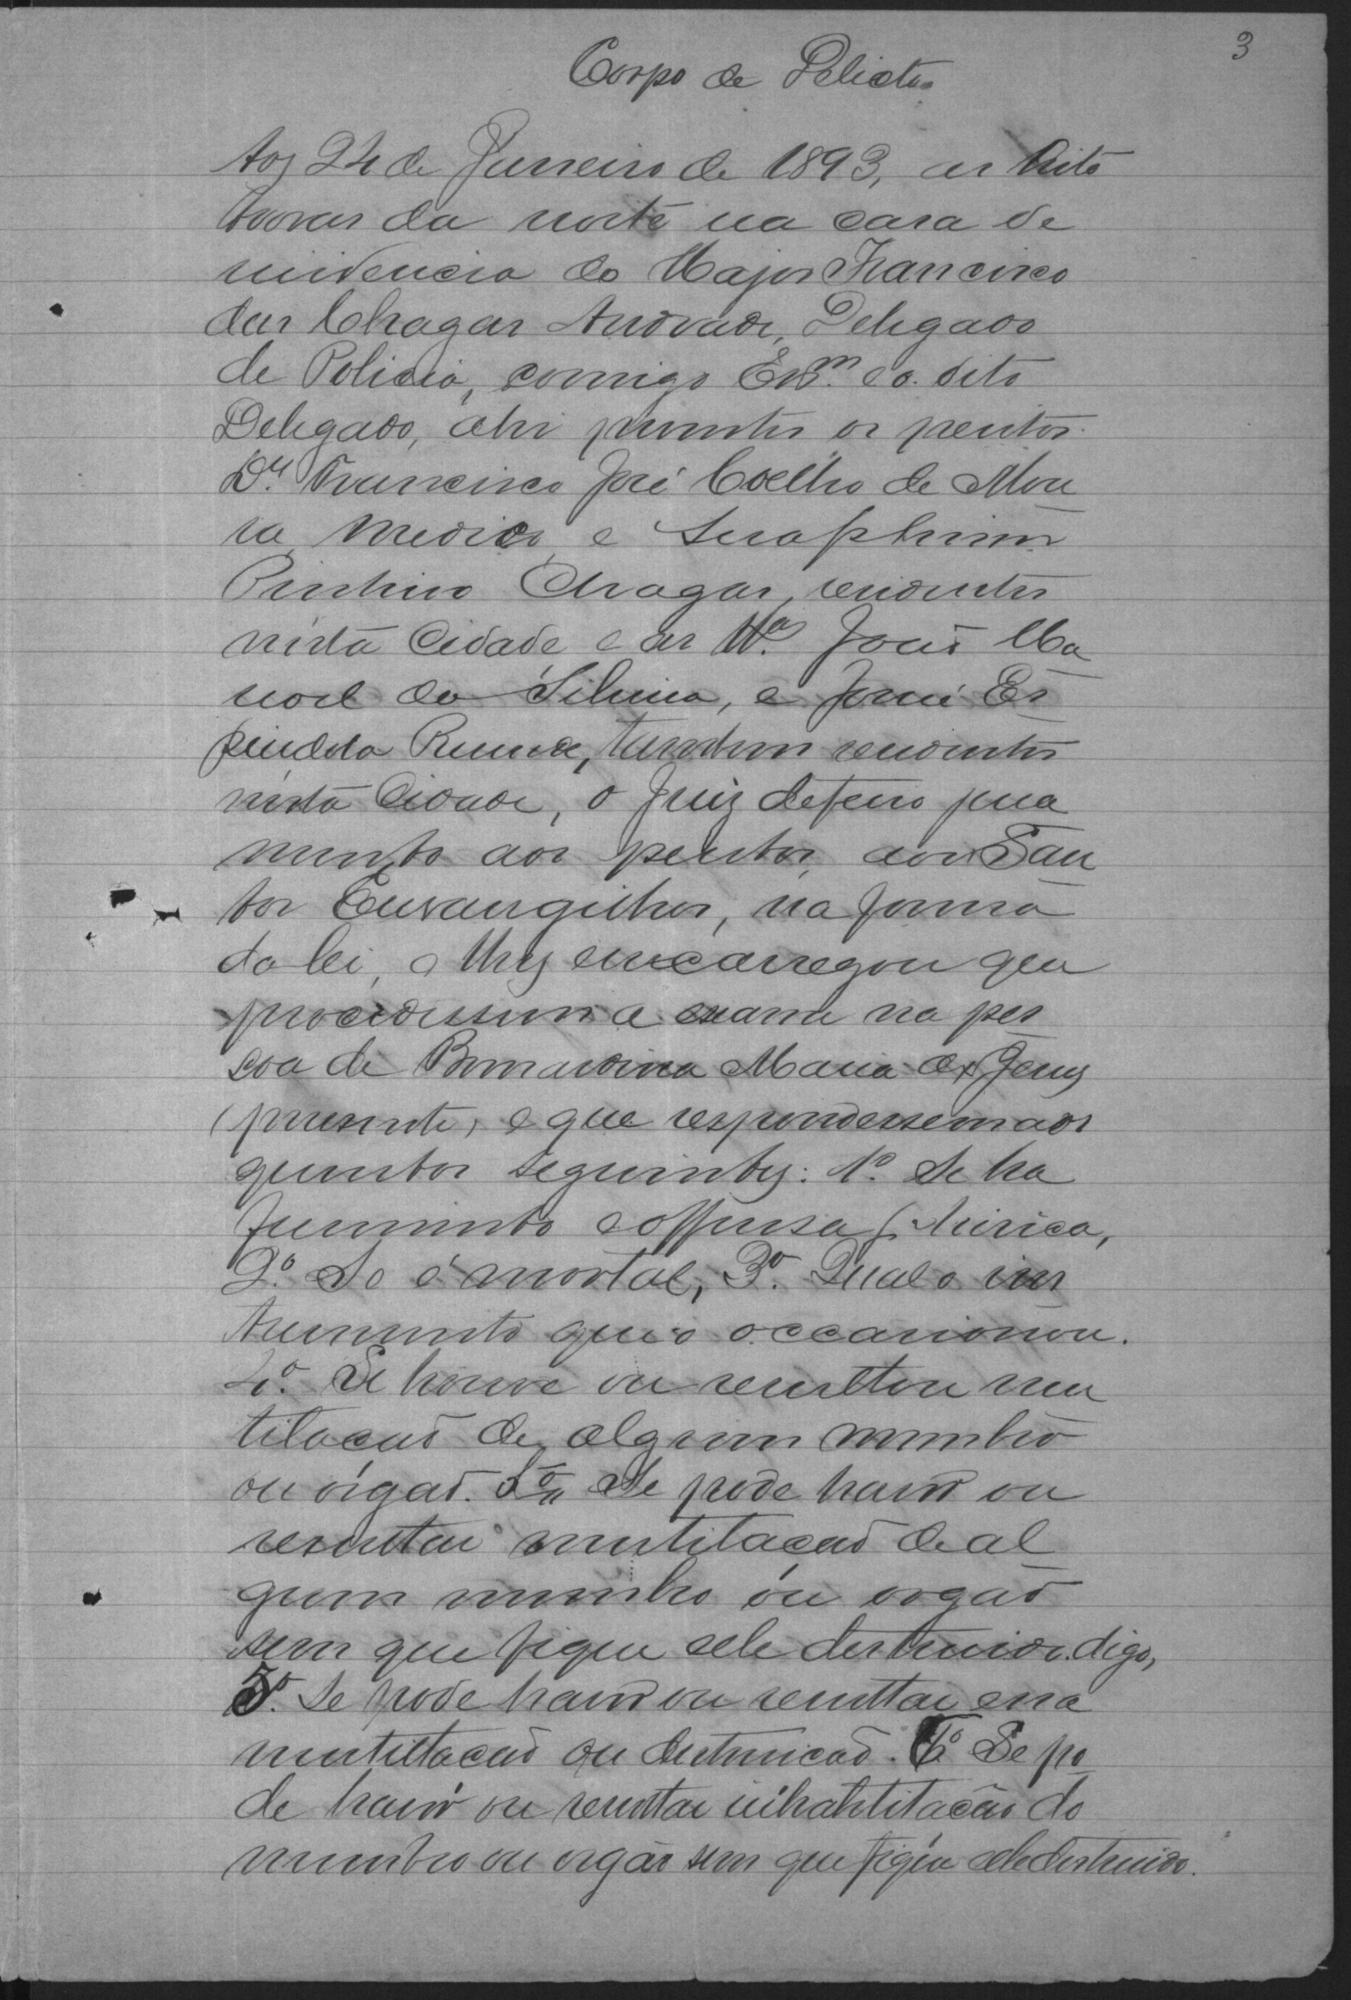 3
Corpo de Delicto
Aos 24 de Janeiro de 1893, as oito
horas da noite na casa de
residencia do Major Francisco
das Chagas Andrade, Delegado
de Policia, comigo Esm. e o dito
Delegado, ahi presentes os peritos
Dr. Francisco José Coelho de Mou
ra medico, e Seraphim
Pinheiro Chagas, residentes
nesta Cidade e as
noel da Silveira, e José Es
pindola, tambem residentes
nesta Cidade, o Juiz deferio jura
mento aos peritos aos San
tos Euvangelhos, na forma
da lei, e lhes encarregou que
procedessem a exame na pes
soa de Bernardina Maria de Jesus
(presente, e que respondessem aos
quesitos seguintes: 1º. Se ha
ferimento e offensa phisica,
2º. Se é mortal, 3º. Qual o ins
trumento que o occasionou.
4º. Se houve ou resultou mu
tilação de algum membro
ou orgão. 5º Se pode haver ou
resultar mutilação de al
gum membro ou orgão
sem que fique elle destruido. digo,
5º. Se pode haver ou resultar essa
mutilação ou destruição. 6º Se po
de haver ou resultar inhabilitação do
membro ou orgão sem que fique elle destruido.